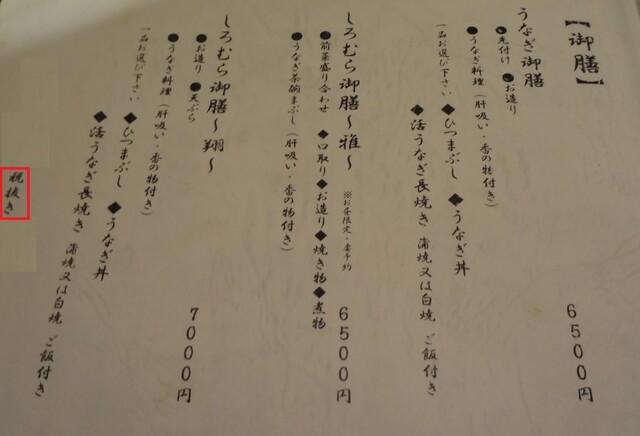 【御膳】
うなぎ御膳
●先付け ●お造り
●うなぎ料理(肝吸い・香の物付き)
一品お選び下さい
◆ひつまぶし ◆うなぎ丼
◆活うなぎ長焼き 蒲焼又は白焼 ご飯付き
6500円
しろむら御膳~雅~ ※お昼限定・要予約
●前菜盛り合わせ ◆口取り◆お造り◆焼き物◆煮物
●うなぎ茶碗まぶし(肝吸い・香の物付き)
6500円
しろむら御膳~翔~
●お造り ●天ぷら
●うなぎ料理(肝吸い・香の物付き)
一品お選び下さい
◆ひつまぶし ◆うなぎ丼
◆活うなぎ長焼き 蒲焼又は白焼 ご飯付き
7000円
税抜き